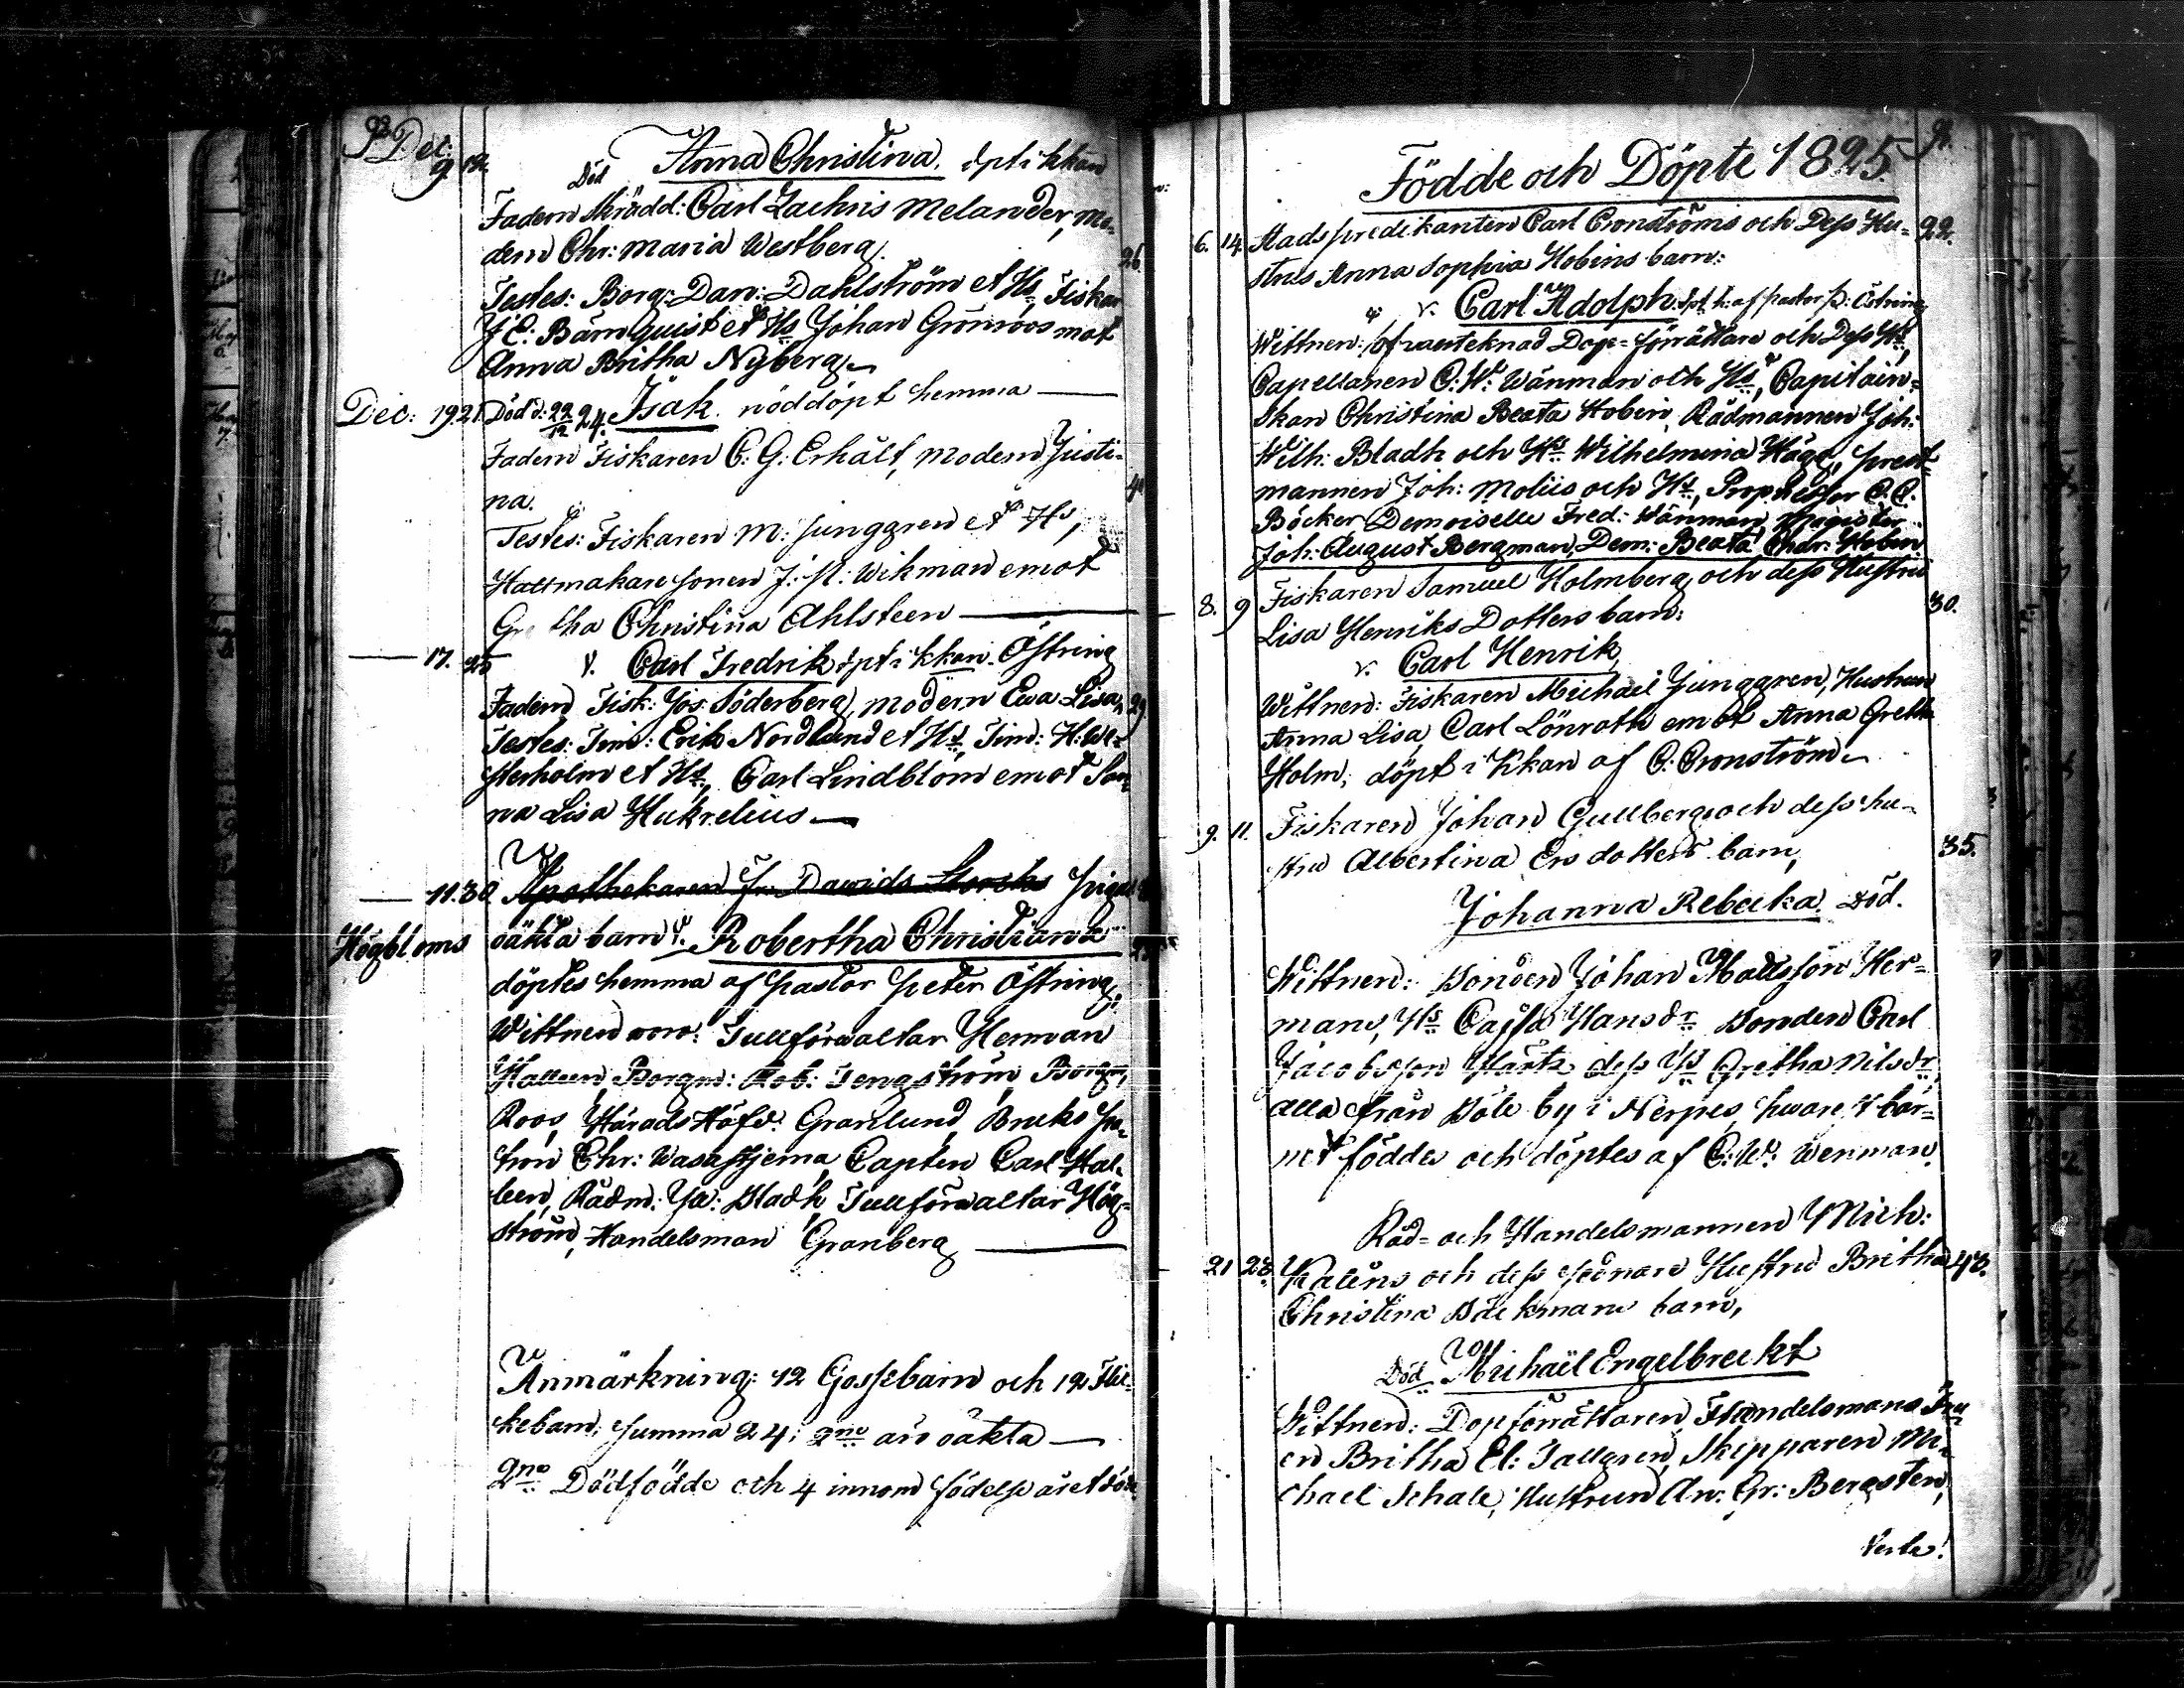 93. Dec:
9 12. Död Anna Christina. döpt i kkan
Fadern Skrädd: Carl Zachris Melander, Mo-
dern Chr: Maria Westberg. 26.
Testes: Borg: Dan: Dahlström et Hs, Fiskar
J E: Bärnquist et Hs Johan Grönroos mot
Anna Britha Nyberg
Dec: 19 21. Död d: 22/12 24. Isak. nöddöpt hemma
Fadern Fiskaren C: G: Erhält, modern Justi-
na.
Testes: Fiskaren M: Junggren et Hs,
Hattmakare sonen J: N: Wikman emot
Gretha Christina Ahlsteen
17. 25 v. Carl Fredrik döpt i kkan. Östring
Fadern Fisk: Jos: Söderberg, modern Ewa Lisa, 29
Testes: Tim: Erik Nordlund et Hs, Tim: H: We-
sterholm et Hs, Carl Lindblom emot San-
na Lisa Hukrelius
11. 30. Apothekaren Fr: Davids Storcks Pigas
Högbloms oäkta barn v. Robertha Christiana
döptes hemma af Pastor Peter Östring.
Wittnen woro: Tullförvaltar Herman
Halleen, Borgm: Rob: Tengström, Borgm,
Roos, Härads Höfd: Granlund, Bruks Pa-
tron Chr: Wasastjerna, Capten Carl Hal-
leen, Rådm: Ja: Bladh, Tullförvaltar Hög-
ström, Handelsman Granberg
Anmärkning: 12 Gossebarn och 12 Flic-
kebarn; Summa 24; 2ne äro oäkta
2ne Dödfödde och 4 innom födelse året död
Födde och Döpte 1825.
6. 14. Stadspredikanten Carl Cronströms och Dess Hu- 22.
strus Anna Sophia Hobins barn:
v. Carl Adolph. döpt h: af pastor p: Östring
Wittnen: ofvanteknad Dop-förrättare och Dess Hs,
Capellanen C: W: Wänman och Hs, Capitain-
skan Christina Beata Hobin, Rådmannen Joh:
Wilh: Bladh och Hs Wilhelmina Hägg, prest-
mannen Joh: Molius och Hs, C. C.
Böcker Demoiselle Fred: Wänman, Magister
Joh: August Bergman, Dem: Beata Chr: Hobin
8. 9 Fiskaren Samuel Holmberg, och dess Hustru 30.
Lisa Henriks Dotters barn:
v. Carl Henrik,
Wittnen: Fiskaren Michael Junggren, Hustrun
Anna Lisa, Carl Lönroth emot Anna Greth
Holm; döpt i kkan af C: Cronström
9. 11. Fiskaren Johan Gullbergs och dess hu-
stru Albertina Ersdotters barn, 35.
Johanna Rebecka Död.
Wittnen: Bonden Johan Mattsson Her-
mans, Hs Cajsa Hansdr Bonden Carl
Jacobsson dess Hs Gretha Nilsdr
alla från Böle by i Nerpes, hware t bar-
net föddes och döptes af C: W: Wenman.
Råd- och Handelsmannen Mich:
21 23. och dess sednare Hustru Britha 43.
Christina Bäckmans barn,
Död Michaël Engelbreckt
Wittnen: Dopförrättaren, Handelsmans Fru
en Britha El: Tallgren, Skepparen Mi-
chael Schale, Hustrun An: Gr: Bergsten,
Verte!